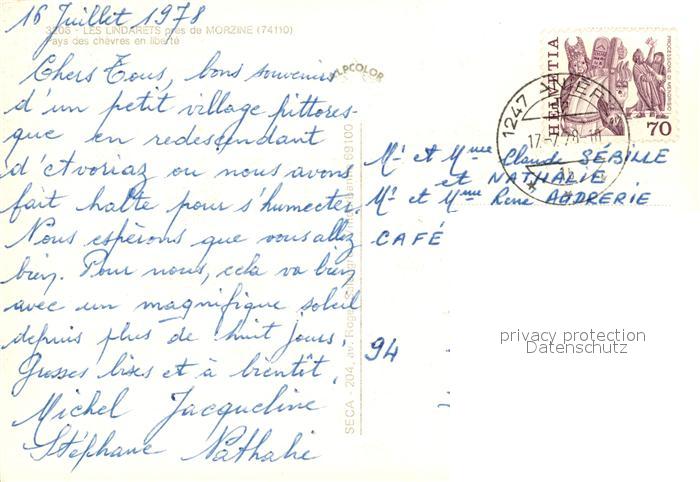 16 Juillet 1978
3206 - LES LINDARETS près de MORZINE (74110)
Pays des chèvres en liberté
ALPCOLOR
Chers Tous, bons souvenirs
d'un petit village pittores-
que en redescendant
d'Avoriaz ou nous avons
fait halte pour s'humecter.
Nous espérons que vous allez
bien. Pour nous, cela va bien
avec un magnifique soleil
depuis plus de huit jours.
Grosses bises et à bientôt,
Michel Jacqueline
Stéphane Nathalie
SECA - 204, av. Roger 69100
HELVETIA
70
1247
17.-7.78.-18
Mr et Mme Claude SÉBILLE
et NATHALIE
Mr et Mme René AUDRERIE
CAFÉ
94
privacy protection
Datenschutz